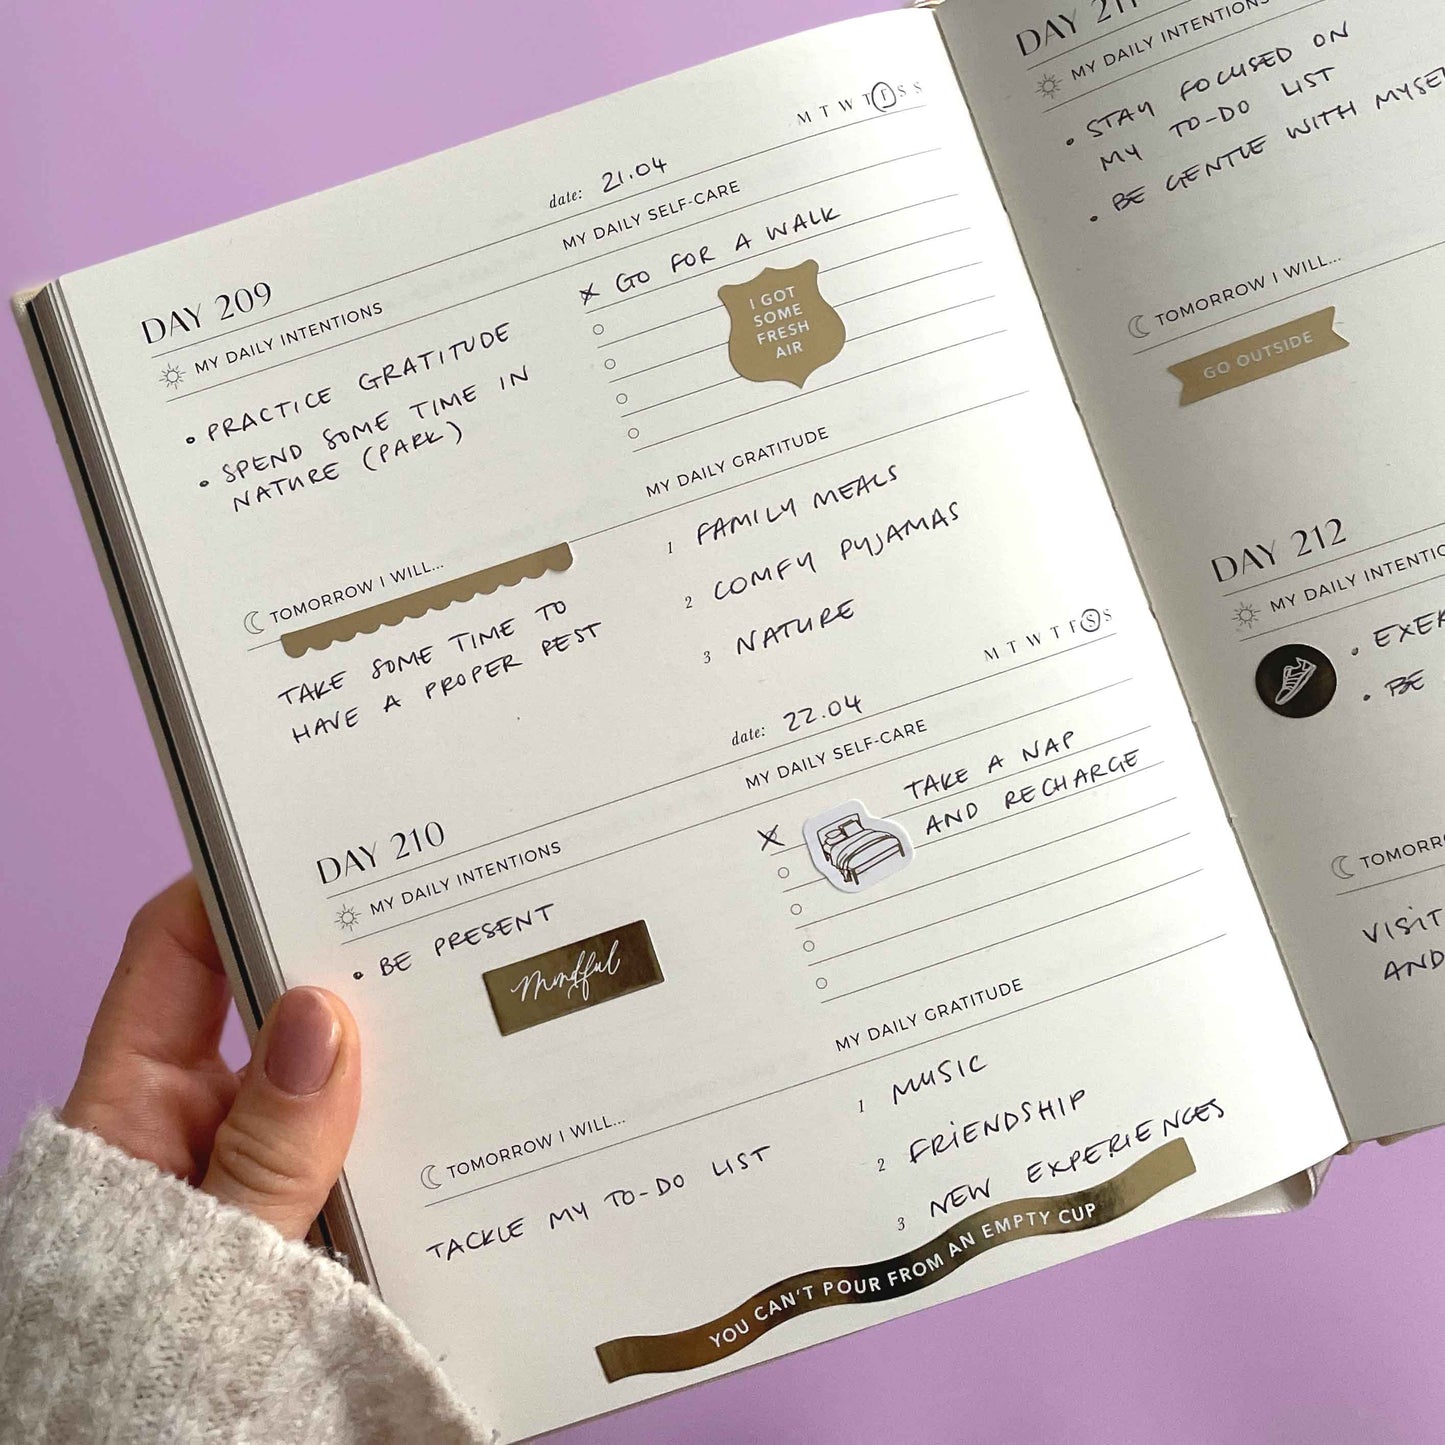 M T W T F S S
date: 21.04
DAY 209
MY DAILY INTENTIONS
• PRACTICE GRATITUDE
• SPEND SOME TIME IN
NATURE (PARK)
MY DAILY SELF-CARE
GO FOR A WALK
I GOT
SOME
FRESH
AIR
MY DAILY GRATITUDE
1 FAMILY MEALS
2 COMFY PYJAMAS
3 NATURE
TOMORROW I WILL...
TAKE SOME TIME TO
HAVE A PROPER REST
M T W T F S S
date: 22.04
DAY 210
MY DAILY INTENTIONS
• BE PRESENT
Mindful
MY DAILY SELF-CARE
TAKE A NAP
AND RECHARGE
MY DAILY GRATITUDE
1 MUSIC
2 FRIENDSHIP
3 NEW EXPERIENCES
TOMORROW I WILL...
TACKLE MY TO-DO LIST
YOU CAN'T POUR FROM AN EMPTY CUP
DAY 211
MY DAILY INTENTIONS
• STAY FOCUSED ON
MY TO-DO LIST
• BE GENTLE WITH
TOMORROW I WILL...
GO OUTSIDE
DAY 212
MY DAILY
• BE
VISIT
AND